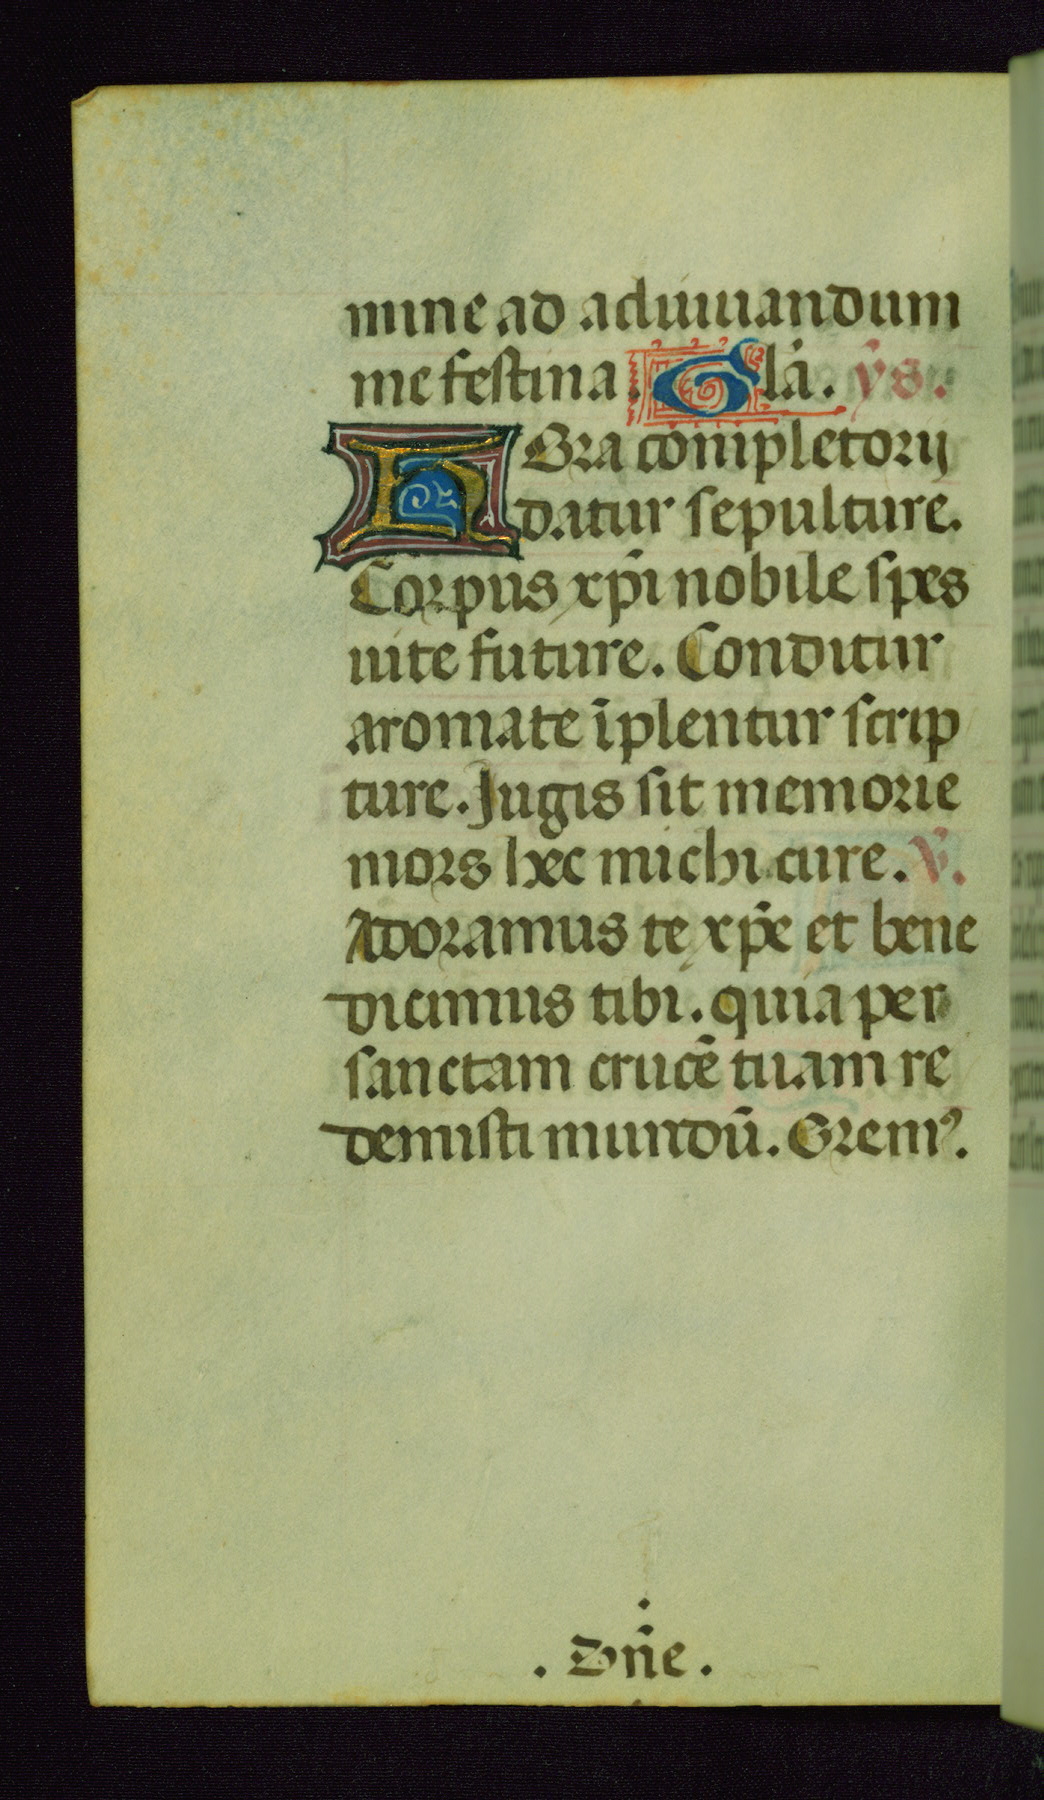 mine ad adiuuandum
me festina. Gla̅. ys.
HOra completorij
datur sepulture.
Corpus xpi̅ nobile spes
uite future. Conditur
aromate i̅plentur scrip
ture. Jugis sit memorie
mors hec michi cure. V̅.
Adoramus te xpe̅ et bene
dicimus tibi. quia per
sanctam cruce̅ tuam re
demisti mundu̅. Orem⁹.
. Dn̅e .